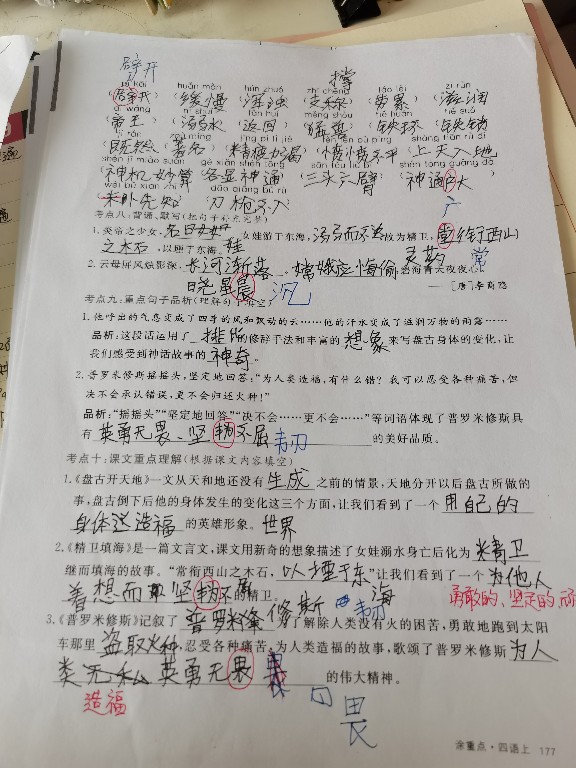 劈开 撑
pī kāi huǎn màn hún zhuó zhī chēng láo lèi zī rùn
(劈开)(缓慢)(浑浊)(支撑)(劳累)(滋润)
dì wáng
(帝王)(汤水)(返回)(猛兽)(铁环)(铁锁)
(既然)(著名)(精疲力竭)(愤愤不平)(上天入地)
shén jī miào suàn gè xiǎn shén tōng sān tóu liù bì shén tōng guǎng dà
(神机妙算)(各显神通)(三头六臂)(神通广大)
wèi bǔ xiān zhī dāo qiāng bú rù
(未卜先知)(刀枪不入)
考点八:背诵、默写(把句子补充完整)
1.炎帝之少女,名曰女娃。女娃游于东海,溺而不返,故为精卫,常衔西山
之木石,以堙于东海。
2.云母屏风烛影深,长河渐落晓星沉。嫦娥应悔偷灵药,碧海青天夜夜心。
——[唐]李商隐
考点九:重点句子品析(理解句子填空)
1.他呼出的气息变成了四季的风和飘动的云……他的汗水变成了滋润万物的雨露……
品析:这段话运用了排比的修辞手法和丰富的想象来写盘古身体的变化,让
我们感受到神话故事的神奇。
2.普罗米修斯摇摇头,坚定地回答:“为人类造福,有什么错?我可以忍受各种痛苦,但
决不会承认错误,更不会归还火种!”
品析:“摇摇头”“坚定地回答”“决不会……更不会……”等词语体现了普罗米修斯具
有英勇无畏、坚韧不屈的美好品质。 韧
考点十:课文重点理解(根据课文内容填空)
1.《盘古开天地》一文从天和地还没有生成之前的情景,天地分开以后盘古所做的
事,盘古倒下后他的身体发生的变化这三个方面,让我们看到了一个用自己的
身体造福世界的英雄形象。
2.《精卫填海》是一篇文言文,课文用新奇的想象描述了女娃溺水身亡后化为精卫
继而填海的故事。“常衔西山之木石,以堙于东海”让我们看到了一个为他人
着想而坚韧不屈的精卫。 韧 勇敢的、坚定的
3.《普罗米修斯》记叙了普罗米修斯为了解除人类没有火的困苦,勇敢地跑到太阳
车那里盗取火种,忍受各种痛苦,为人类造福的故事,歌颂了普罗米修斯为人
类无私英勇无畏的伟大精神。
造福 畏
涂重点·四语上 177